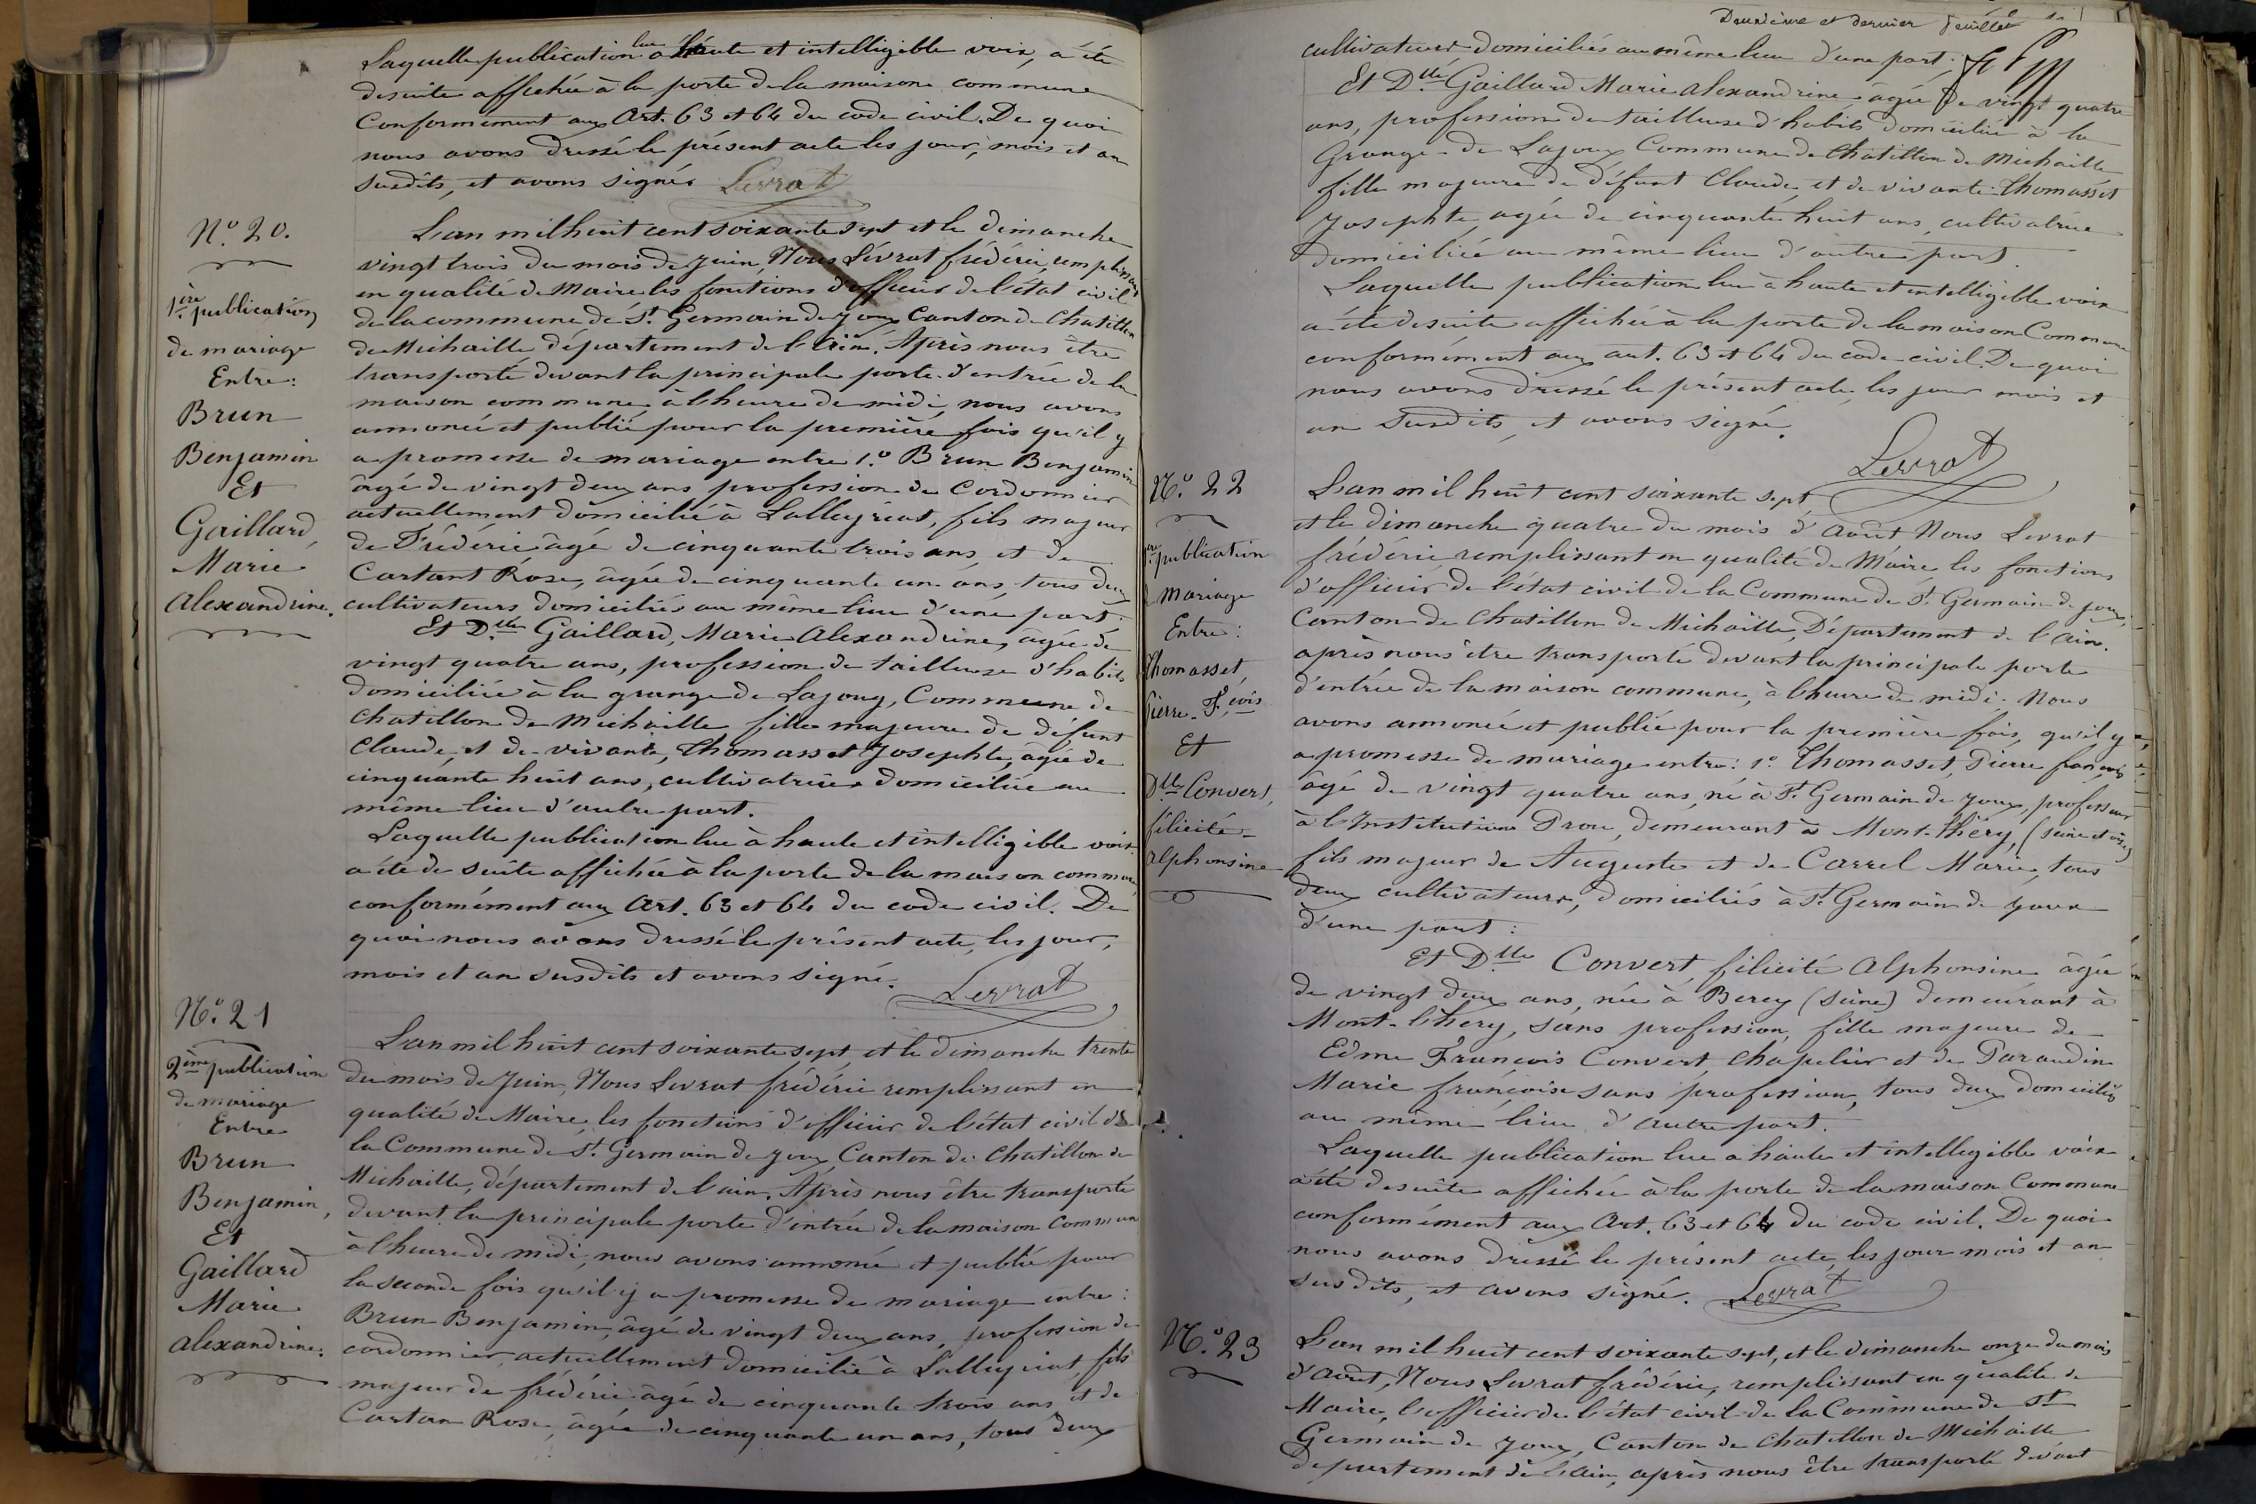 Laquelle publication lue à haute et intelligible voix, a été
de suite affichée à la porte de la maison commune
Conformément aux Art. 63 et 64 du code civil. De quoi
nous avons dressé le présent acte les jour, mois et an
susdits, et avons signés Levrat
N.º 20.
1ère publication
de mariage
Entre:
Brun
Benjamin
Et
Gaillard,
Marie
Alexandrine.
L'an mil huit cent soixante sept et le dimanche
vingt trois du mois de juin, Nous Levrat frédéric, remplissant
en qualité de Maire les fonctions d'officier de l'état civil
de la commune de St. Germain de joux Canton de Chatillon
de Michaille département de l'Ain. Après nous être
transporté devant la principale porte d'entrée de la
maison commune, à l'heure de midi, nous avons
annoncé et publié pour la première fois qu'il y
a promesse de mariage entre 1.º Brun Benjamin
âgé de vingt deux ans profession de Cordonnier
actuellement domicilié à Lalleyriat, fils majeur
de Frédéric âgé de cinquante trois ans et de
Cartant Rose, âgée de cinquante un ans, tous deux
cultivateurs domiciliés au même lieu d'une part.
Et D.lle Gaillard, Marie Alexandrine, âgée de
vingt quatre ans, profession de tailleuse d'habits
domiciliée à la grange de Lajoux, Commune de
Chatillon de Michaille fille majeure de défunt
Claude, et de vivante, Thomasset Josephte, âgée de
cinquante huit ans, cultivatrice domiciliée au
même lieu d'autre part.
Laquelle publication lue à haute et intelligible voix
a été de suite affichée à la porte de la maison commune,
conformément aux Art. 63 et 64 du code civil. De
quoi nous avons dressé le présent acte, les jour,
mois et an susdits et avons signé.
Levrat
N.º 21
2ème publication
de mariage
Entre
Brun
Benjamin,
Et
Gaillard
Marie
Alexandrine.
L'an mil huit cent soixante sept, et le dimanche trente
du mois de juin, Nous Levrat frédéric remplissant en
qualité de Maire, les fonctions d'officier de l'état civil de
la Commune de St. Germain de joux Canton de Chatillon de
Michaille, département de l'ain. Après nous être transporté
devant la principale porte d'entrée de la maison Commune
à l'heure de midi, nous avons annoncé et publié pour
la seconde fois qu'il y a promesse de mariage entre:
Brun Benjamin, âgé de vingt deux ans, profession de
cordonnier, actuellement domicilié à Lalleyriat, fils
majeur de frédéric âgé de cinquante trois ans et de
Cartan Rose, âgée de cinquante un ans, tous deux
Deuxième et dernier feuillet
cultivateurs, domiciliés au même lieu d'une part.
Et D.lle Gaillard Marie Alexandrine âgée de vingt quatre
ans, profession de tailleuse d'habits domiciliée à la
Grange de Lajoux Commune de Chatillon de Michaille
fille majeure de défunt Claude, et de vivante Thomasset
Josephte, agée de cinquante huit ans, cultivatrice
domiciliée au même lieu d'autre part.
Laquelle publication lue à haute et intelligible voix
a été de suite affichée à la porte de la maison Commune
conformément aux art. 63 et 64 du code civil. De quoi
nous avons dressé le présent acte, les jour mois et
an susdits, et avons signé.
Levrat
N.º 22
1ère publication
de Mariage
Entre:
Thomasset,
Pierre-F.cois
Et
D.lle Convert,
félicité-
Alphonsine
L'an mil huit cent soixante sept
et le dimanche quatre du mois d'août Nous Levrat
frédéric, remplissant en qualité de Maire les fonctions
d'officier de l'état civil de la Commune de St. Germain de joux,
Canton de Chatillon de Michaille, Département de l'Ain.
après nous être transporté devant la principale porte
d'entrée de la maison commune, à l'heure de midi. Nous
avons annoncé et publié pour la première fois, qu'il y
a promesse de mariage entre: 1.º Thomasset, Pierre françois
âgé de vingt quatre ans, né à St. Germain de Joux, professeur
à l'Institution Drou, demeurant à Mont-lhéry, (seine et oise)
fils majeur de Auguste et de Carrel Marie, tous
deux cultivateurs, domiciliés à St. Germain de joux
d'une part:
Et D.lle Convert, félicité Alphonsine âgée
de vingt deux ans, née à Bercy (Seine) demeurant à
Mont-lhery, sans profession, fille majeure de
Edme François Convert, Chapelier et de Paraudin
Marie françoise sans profession, tous deux domiciliés
au même lieu d'autre part.
Laquelle publication lue a haute et intelligible voix
a été de suite affichée à la porte de la maison Commune
conformément aux Art. 63 et 64 du code civil. De quoi
nous avons dressé le présent acte, les jour mois et an
susdits, et avons signé. Levrat
N.º 23
L'an mil huit cent soixante sept, et le dimanche onze du mois
d'août, Nous Levrat frédéric, remplissant en qualité de
Maire, l'officier de l'état civil de la Commune de St
Germain de joux, Canton de Chatillon de Michaille
département de l'Ain, après nous être transporté devant